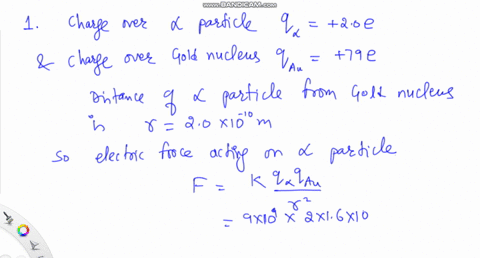 WWW.BANDICAM.COM
1. Charge over α particle qα = +2.0e
& Charge over Gold nucleus qAu = +79e
Distance of α particle from Gold nucleus
is r = 2.0 × 10⁻¹⁰ m
So electric froce acting on α particle
F = K qα qAu / r²
= 9×10⁹ × 2×1.6×10